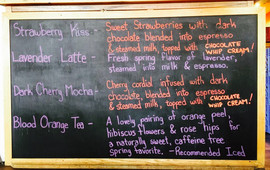 Strawberry Kiss - Sweet Strawberries with dark
chocolate blended into espresso
& steamed milk, topped with CHOCOLATE WHIP CREAM!
Lavender Latte - Fresh spring flavor of lavender,
steamed into milk & espresso.
Dark Cherry Mocha - Cherry cordial infused with dark
chocolate blended into espresso
& steamed milk, topped with CHOCOLATE WHIP CREAM!
Blood Orange Tea - A lovely pairing of orange peel,
hibiscus flowers & rose hips for
a naturally sweet, caffeine free
spring favorite. - Recommended Iced